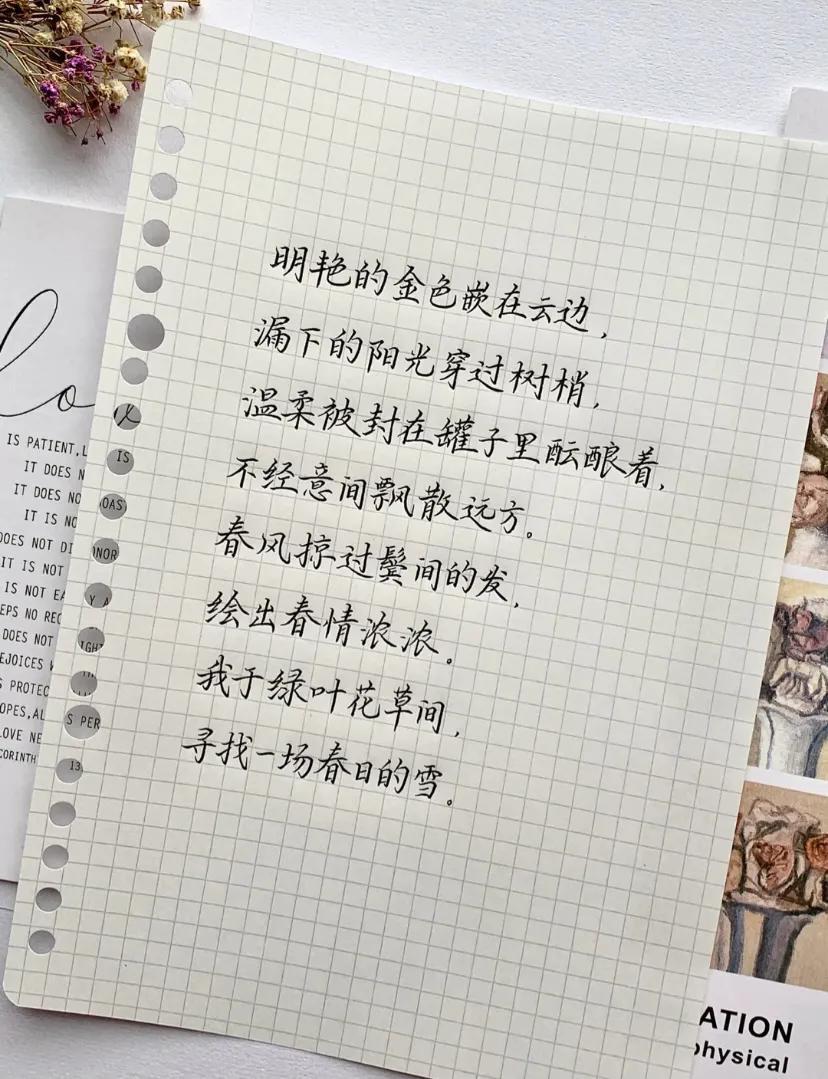 明艳的金色嵌在云边，
漏下的阳光穿过树梢，
温柔被封在罐子里酝酿着，
不经意间飘散远方。
春风掠过鬓间的发，
绘出春情浓浓。
我于绿叶花草间，
寻找一场春日的雪。
lo
IS PATIENT,L
IT DOES N
IT DOES NO
IT IS NO
DOES NOT DI
IT IS NOT
IS NOT EA
EPS NO REC
DOES NOT
EJOICES W
S PROTEC
OPES,AL
LOVE NE
CORINTH
IS
OAS
NOR
Y A
IGHT
S PER
13
ATION
physical